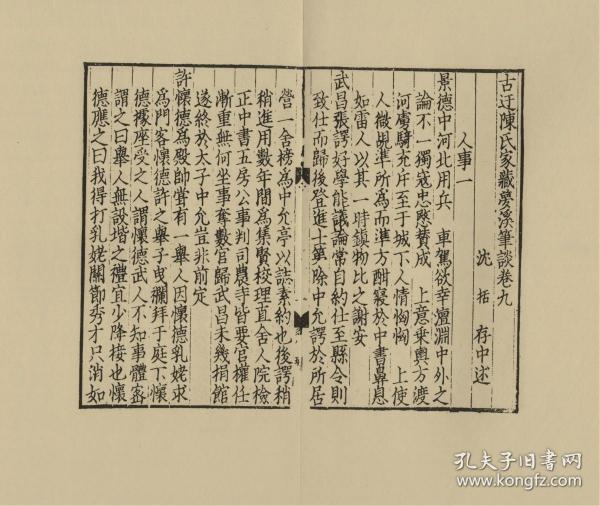 古迂陳氏家藏夢溪筆談卷九
沈括 存中述
人事一
景德中河北用兵 車駕欲幸澶淵中外之
論不一獨寇忠愍贊成 上意乘輿方渡
河虜騎充斥至于城下人情恟恟 上使
人微覘準所為而準方酣寢於中書鼻息
如雷人以其一時鎮物比之謝安
武昌張諤好學能議論常自約仕至縣令則
致仕而歸後登進士第除中允諤於所居
營一舍榜為中允亭以誌素約也後諤稍
稍進用數年間為集賢校理直舍人院檢
正中書五房公事判司農寺皆要官權任
漸重無何坐事奪數官歸武昌未幾捐館
遂終於太子中允豈非前定
許懷德為殿帥嘗有一舉人因懷德乳姥求
為門客懷德許之舉子曳襴拜于庭下懷
德據座受之人謂懷德武人不知事體密
謂之曰舉人無設堦之禮宜少降接也懷
德應之曰我得打乳姥關節秀才只消如
孔夫子旧书网
www.kongfz.com